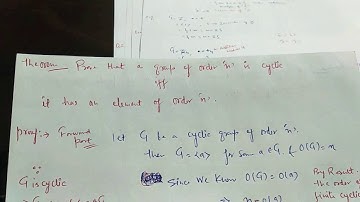 Theorem Prove that a group of order 'n' is cyclic
iff
it has an element of order 'n'.
proof:→ Forward part Let G be a cyclic group of order 'n'.
then G = <a> for some a∈G. & O(G)=n
∵
G is cyclic
Since We know O(G) = O(a)
By Result
the order
finite cyclic
⇒ n = O(a)